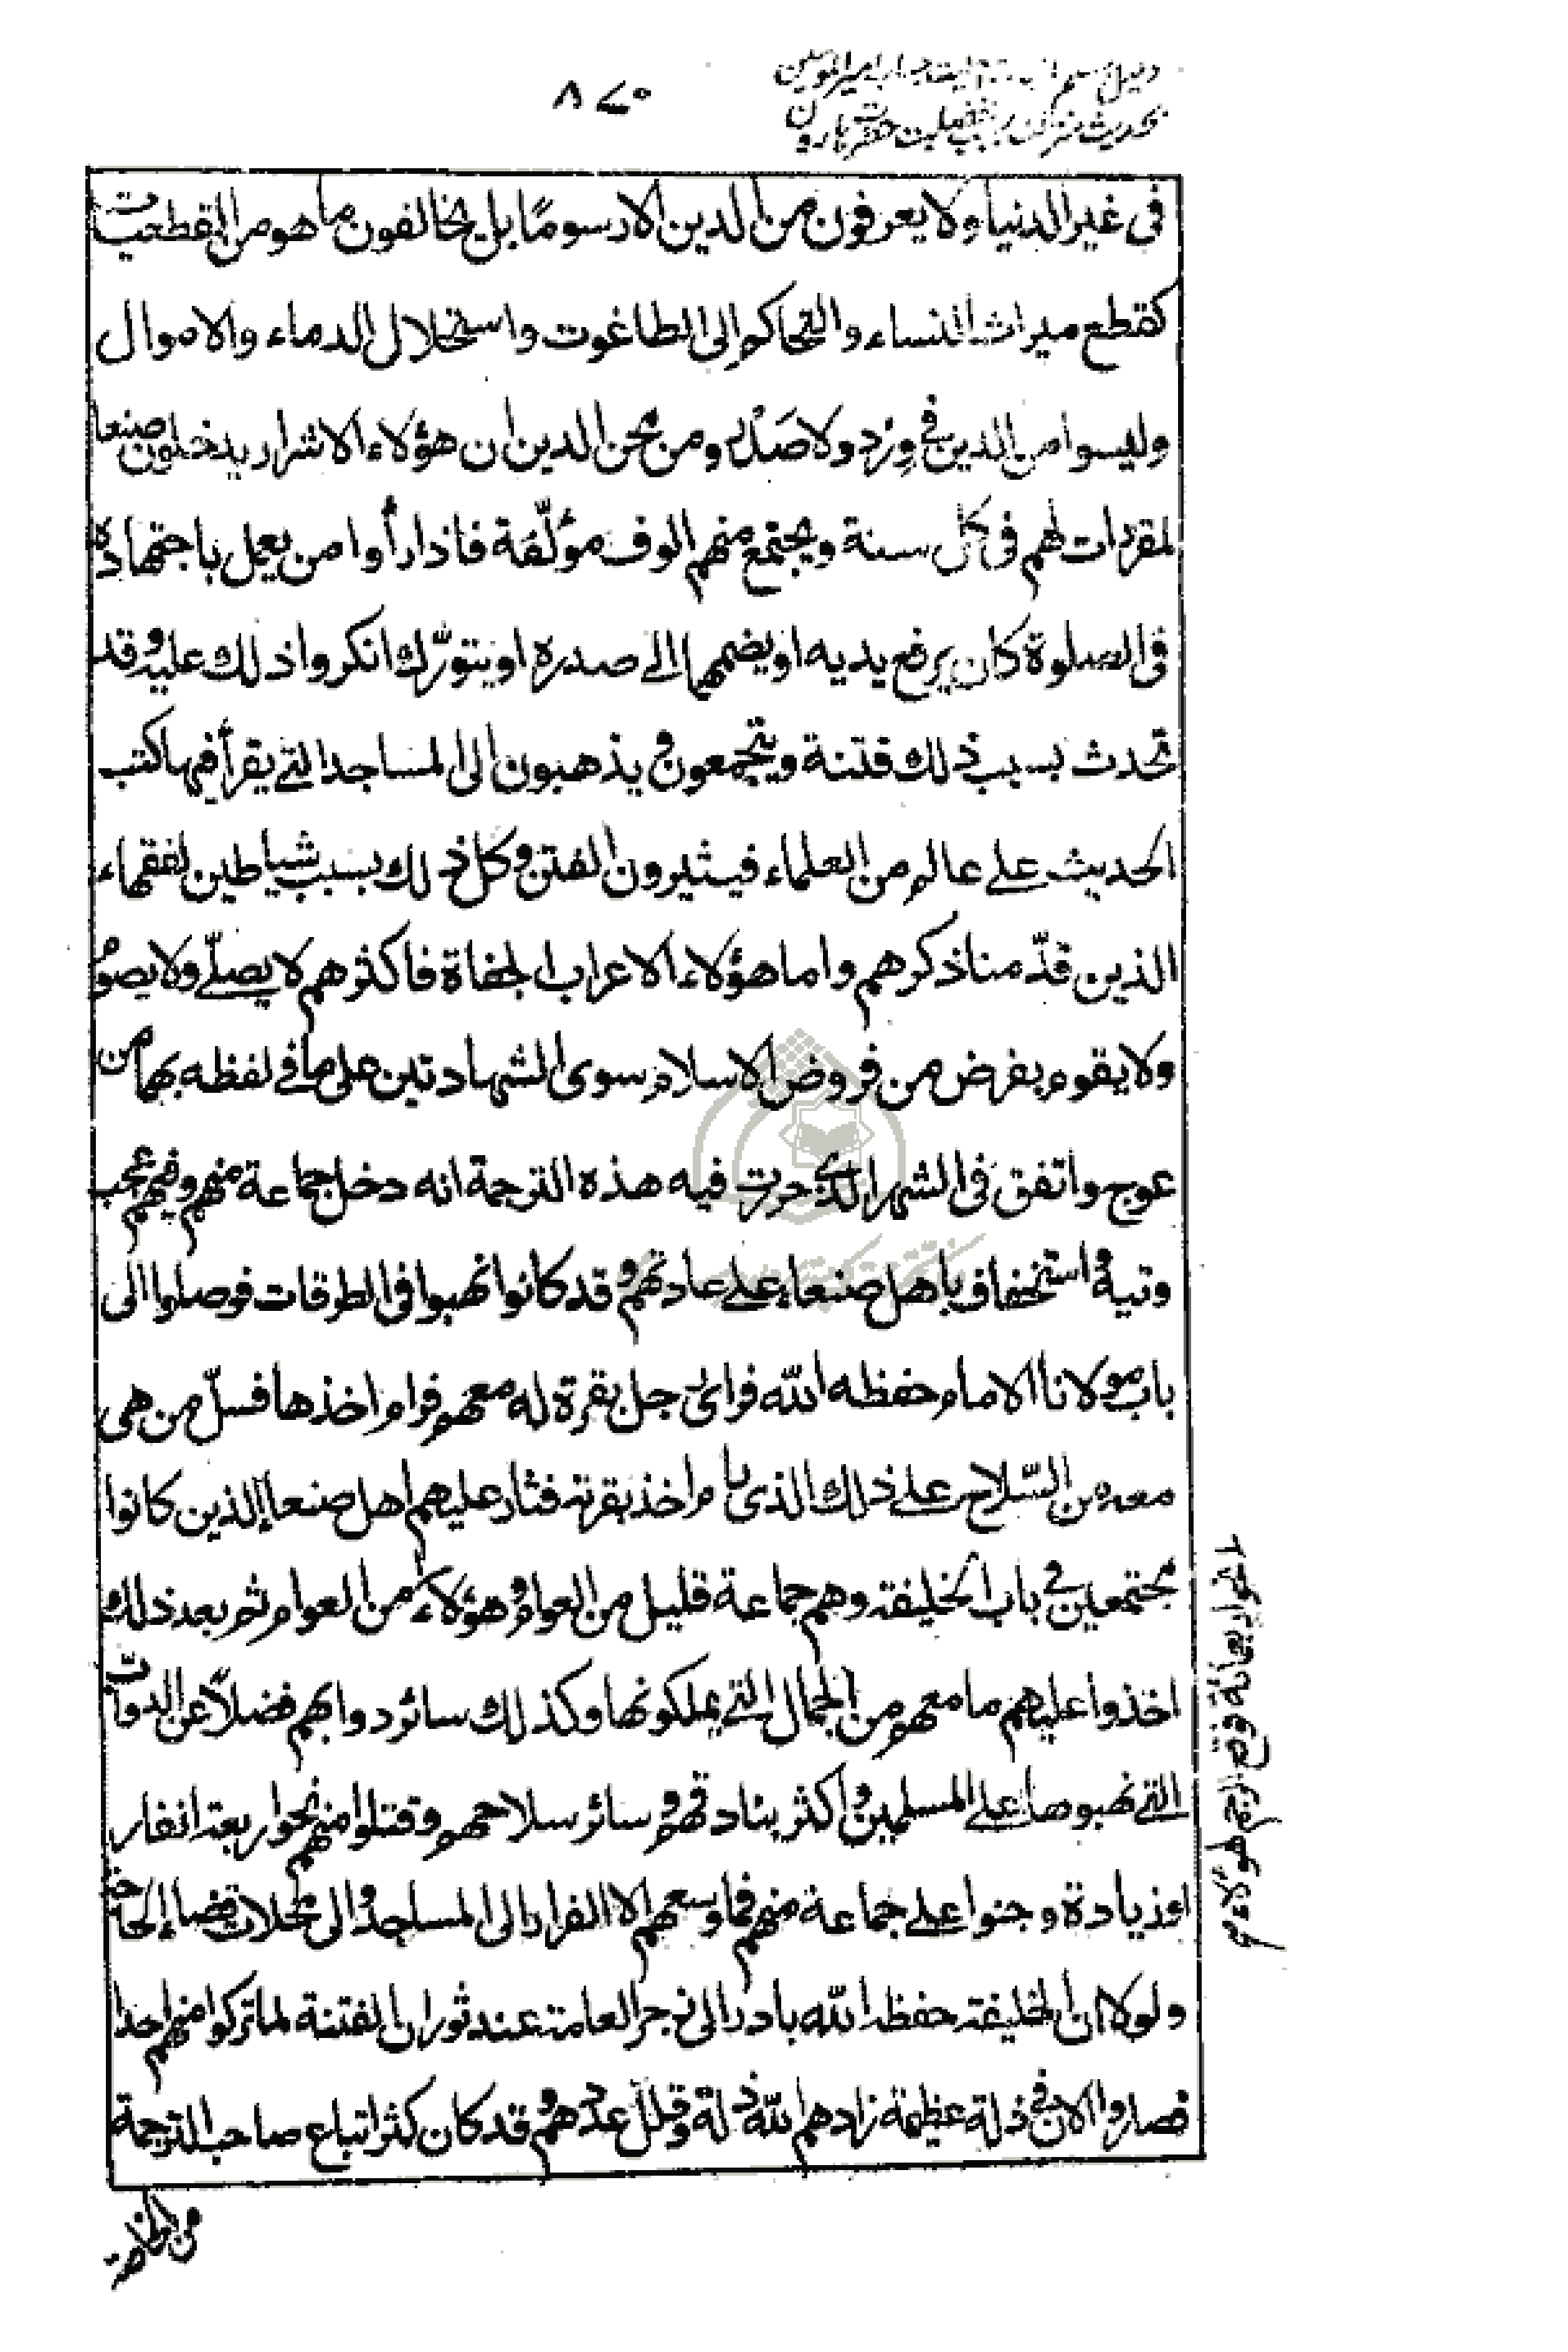 دلیل سلم از حدیث امیر المؤمنین
بحدیث منزلت بر حضرت هارون
۸۷۰
فى غير الدنيا ولا يعرفون من الدين الا رسومًا بل يخالفون ما هو من القطعيات
كقطع ميراث النساء والتحاكم الى الطاغوت واستحلال الدماء والاموال
وليسوا من الدين فى وِرْد ولا صَدَر ومن محن الدين ان هؤلاء الاشرار يدخلون صنعا
لمقررات لهم فى كل سنة ويجتمع منهم الوف مؤلّفة فاذا رأوا من يعمل باجتهاده
فى الصلوة كان يرفع يديه او يضمهما الى صدره او يتورّك انكروا ذلك عليه وقد
تحدث بسبب ذلك فتنة ويتجمعون و يذهبون الى المساجد التى يقرأ فيها كتب
الحديث على عالم من العلماء فيثيرون الفتن وكل ذلك بسبب شياطين الفقهاء
الذين قدّمنا ذكرهم واما هؤلاء الاعراب الجفاة فاكثرهم لا يصلّى ولا يصوم
ولا يقوم بفرض من فروض الاسلام سوى الشهادتين على ما فى لفظه بهما من
عوج واتفق فى الشهر الذى حررت فيه هذه الترجمة انه دخل جماعة منهم وفيهم عجب
وتيه واستخفاف باهل صنعاء على عادتهم وقد كانوا نهبوا فى الطرقات فوصلوا الى
باب مولانا الامام حفظه الله فرأى رجل بقرة له معهم فرام اخذها فسلّ من هى
معه من السّلاح على ذلك الذى رام اخذ بقرته فثار عليهم اهل صنعا الذين كانوا
مجتمعين فى باب الخليفة وهم جماعة قليل من العوام وهؤلاء من العوام ثم بعد ذلك
اخذوا عليهم ما معهم من الجمال التى يملكونها وكذلك سائر دوابهم فضلاً عن الدواب
التى نهبوها على المسلمين واكثر بنادقهم وسائر سلاحهم وقتلوا منهم نحو اربعة انفار
او زيادة وجنوا على جماعة منهم فما وسعهم الا الفرار الى المساجد والى محلات قضاء الحاجة
ولولا ان الخليفة حفظه الله بادر الى زجر العامة عند ثوران الفتنة لما تركوا منهم احدا
فصاروا الان فى ذلة عظيمة زادهم الله ذلة وقلل عددهم وقد كان كثر اتباع صاحب الترجمة
نحو اربعمائة وقع الرجم لهؤلاء
من الخاصة